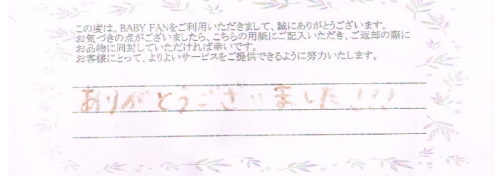 この度は、BABY FANをご利用いただきまして、誠にありがとうございます。
お気づきの点がございましたら、こちらの用紙にご記入いただき、ご返却の際に
お品物に同封していただければ幸いです。
お客様にとって、よりよいサービスをご提供できるように努力いたします。
ありがとうございました!!!